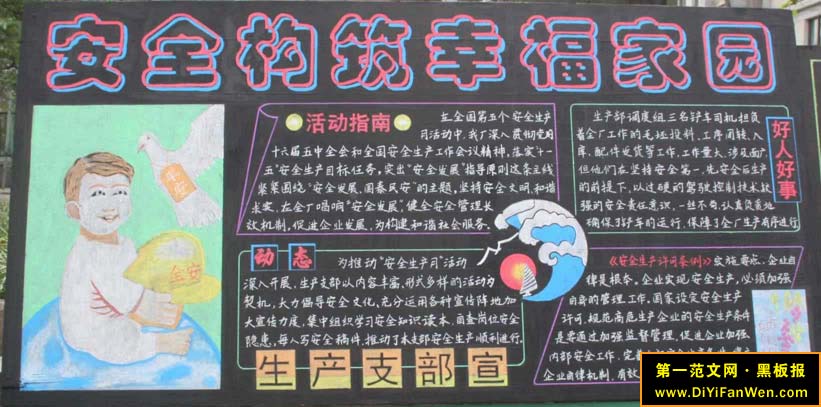 安全构筑幸福家园
平安
安全
活动指南
在全国第五个安全生产
司活动中,我厂深入贯彻党的
十六届五中全会和全国安全生产工作会议精神,落实“十一
五”安全生产目标任务,突出“安全发展”指导原则这条主线
紧紧围绕“安全发展、国泰民安”的主题,坚持安全文明、和谐
求实,在全厂唱响“安全发展”,健全安全管理长
效机制,促进企业发展,为构建和谐社会服务。
动态
为推动“安全生产司”活动
深入开展,生产支部以内容丰富,形式多样的活动为
契机,大力倡导安全文化,充分运用各种宣传阵地加
大宣传力度,集中组织学习安全知识读本,自查岗位安全
隐患,每人写安全稿件,推动了本支部安全生产顺利进行。
生产支部宣
好人好事
生产部调度组三名铲车司机担负
着全厂工作的毛坯投料、工序周转、入
库、配件发货等工作,工作量大,涉及面广,
但他们在坚持安全第一,先安全后生产
的前提下,以过硬的驾驶控制技术,较
强的安全责任意识,一丝不苟,认真负责地
确保了铲车的运行,保障了全厂生产有序进行
《安全生产许可条例》实施要志,企业自
律是根本。企业实现安全生产,必须加强
自身的管理工作,国家设定安全生产
许可,规范高危生产企业的安全生产条件
是要通过加强监督管理,促进企业加强
内部安全工作,完
企业自律机制,有效
第一范文网·黑板报
www.DiYiFanWen.com